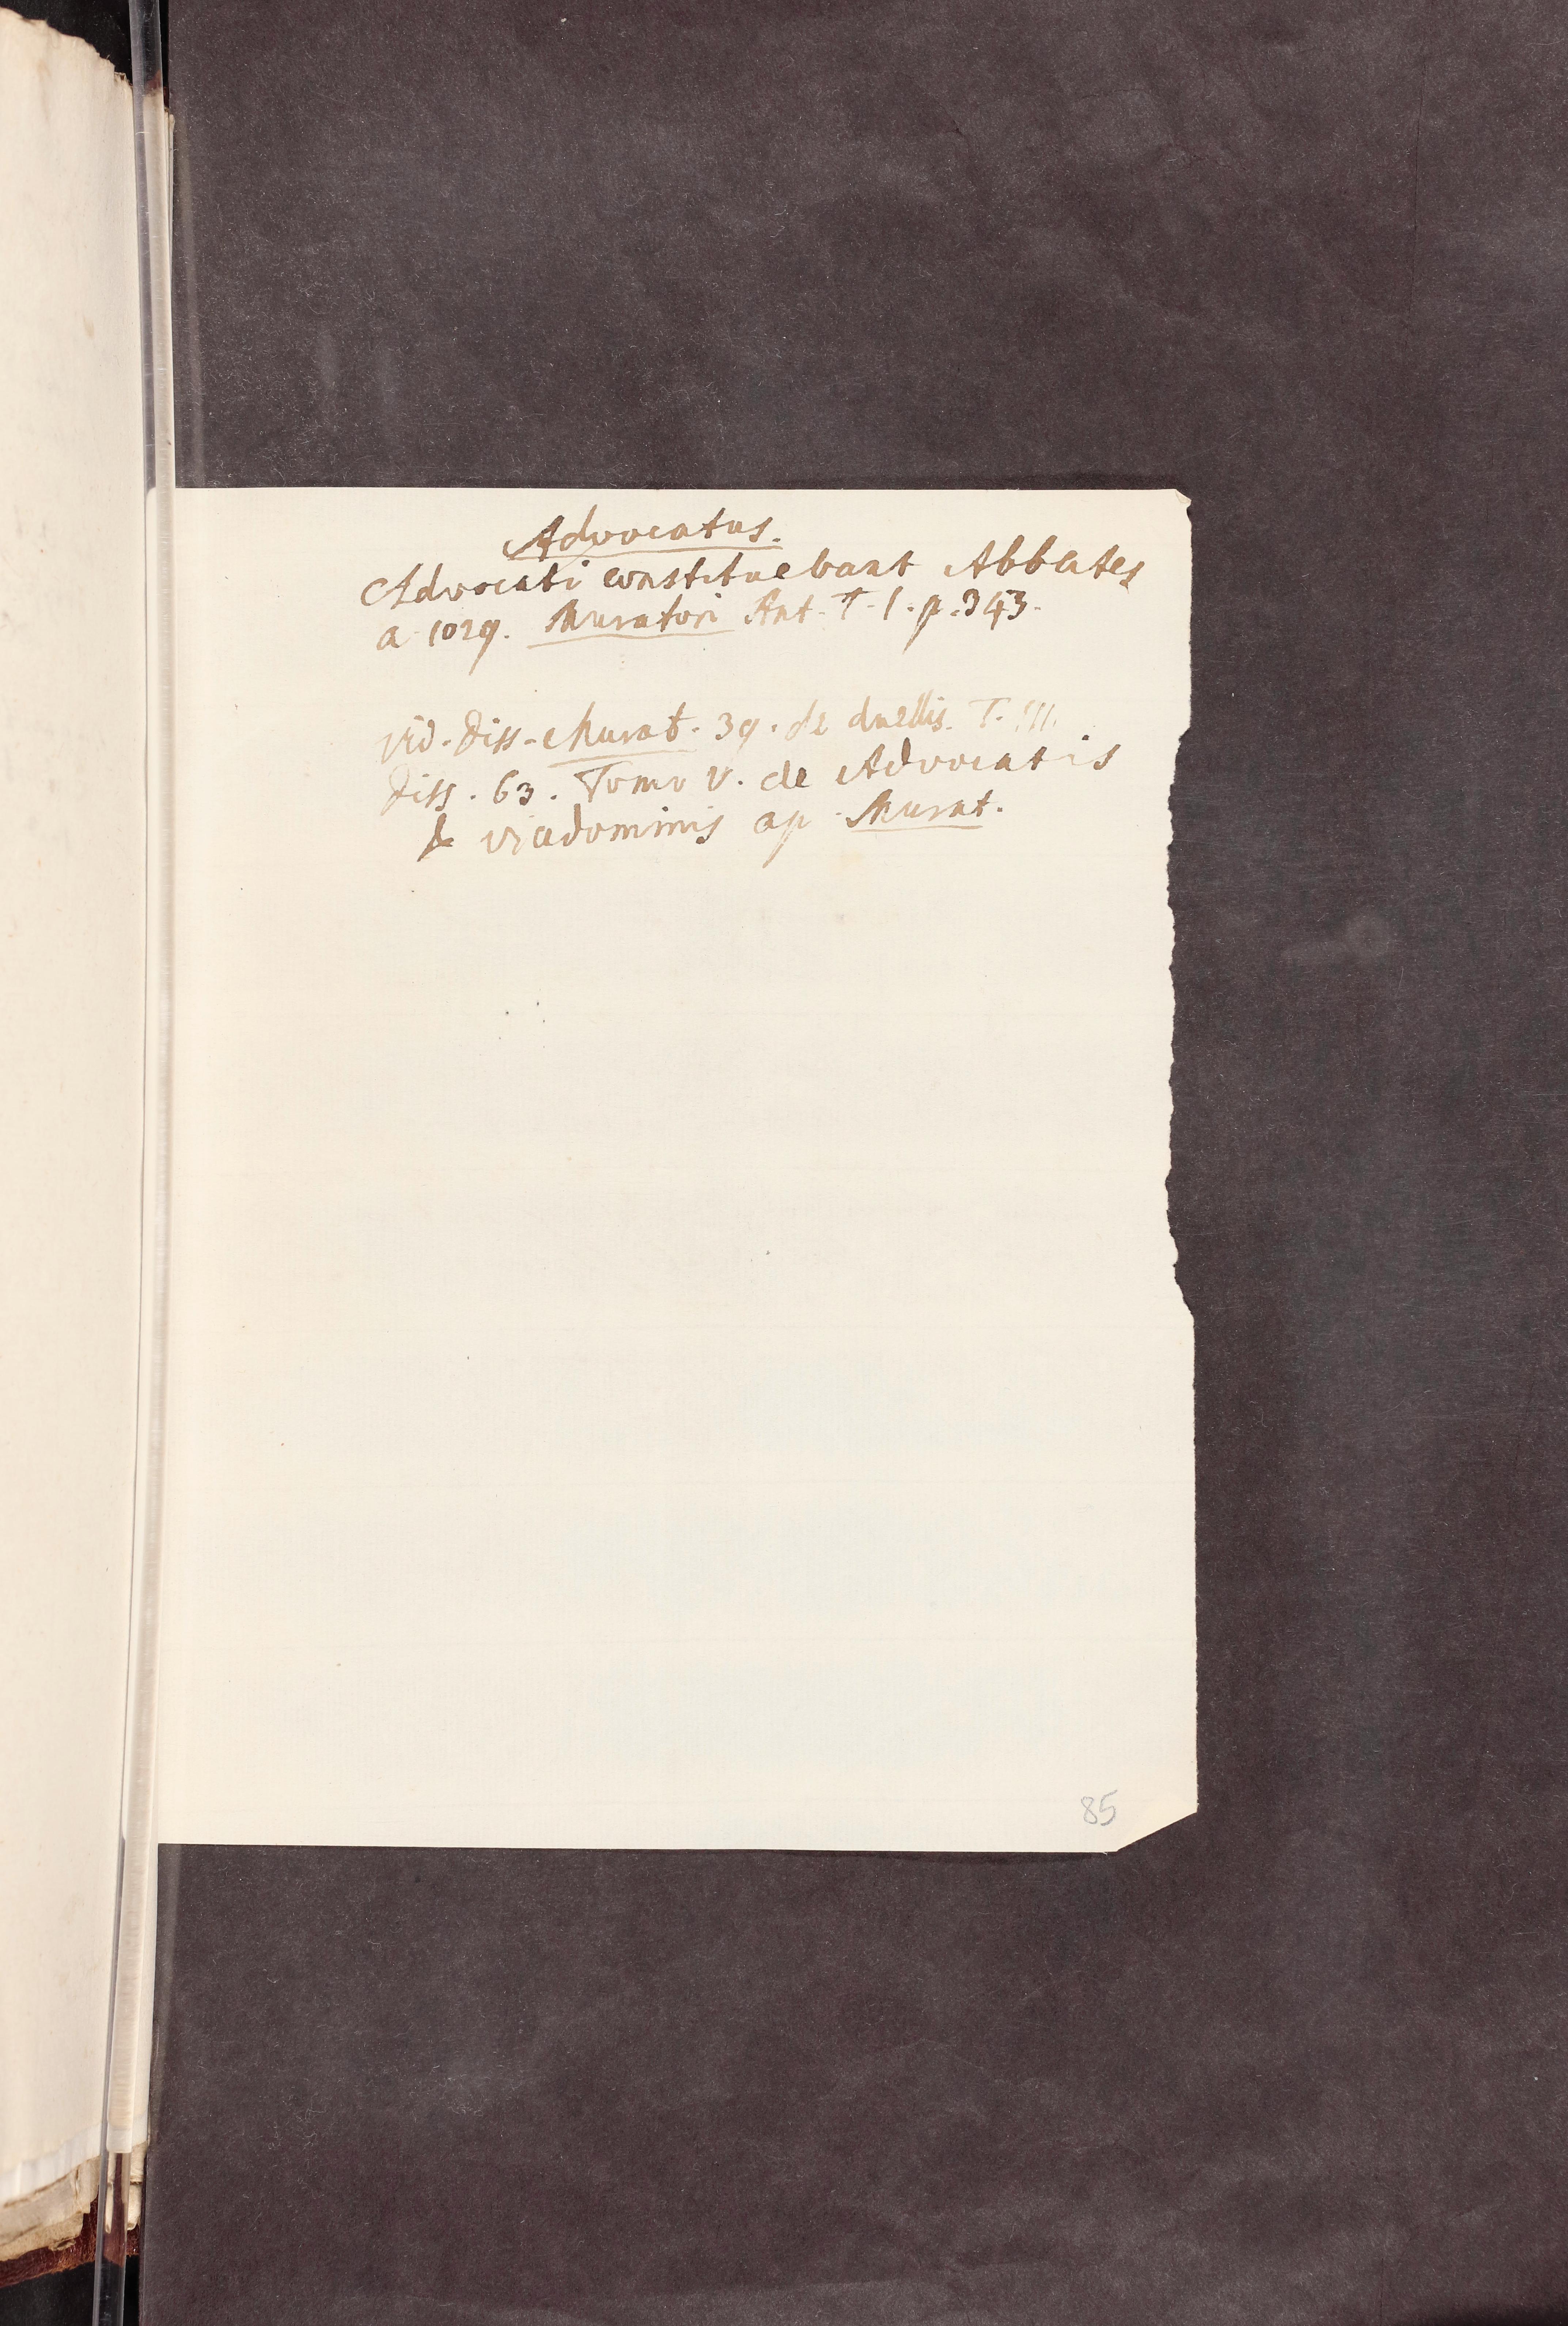 Advocatus.
Advocati constituebant Abbates
a. 1029. Muratori Ant. T. I. p. 343.
vid. Diss. Murat. 39. de duellis. T. III.
Diss. 63. Tomo V. de Advocatis
& vicedominis ap. Murat.
85